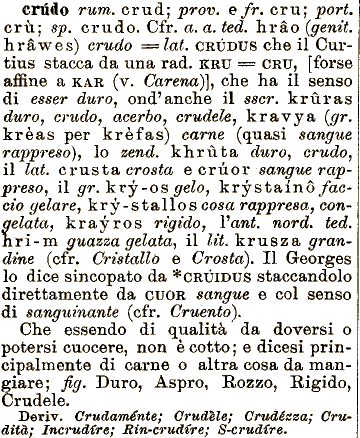 crúdo rum. crud; prov. e fr. cru; port.
crù; sp. crudo. Cfr. a. a. ted. hrâo (genit.
hrâwes) crudo = lat. CRÚDUS che il Cur-
tius stacca da una rad. KRU = CRU, [forse
affine a KAR (v. Carena)], che ha il senso
di esser duro, ond'anche il sscr. krûras
duro, crudo, acerbo, crudele, kravya (gr.
krèas per krèfas) carne (quasi sangue
rappreso), lo zend. khrûta duro, crudo,
il lat. crusta crosta e crúor sangue rap-
preso, il gr. krý-os gelo, krýstaínô fac-
cio gelare, krý-stallos cosa rappresa, con-
gelata, kraŷros rigido, l'ant. nord. ted.
hri-m guazza gelata, il lit. krusza gran-
dine (cfr. Cristallo e Crosta). Il Georges
lo dice sincopato da *CRÚIDUS staccandolo
direttamente da CUOR sangue e col senso
di sanguinante (cfr. Cruento).
Che essendo di qualità da doversi o
potersi cuocere, non è cotto; e dicesi prin-
cipalmente di carne o altra cosa da man-
giare; fig. Duro, Aspro, Rozzo, Rigido,
Crudele.
Deriv. Crudaménte; Crudèle; Crudézza; Cru-
dità; Incrudíre; Rin-crudíre; S-crudíre.